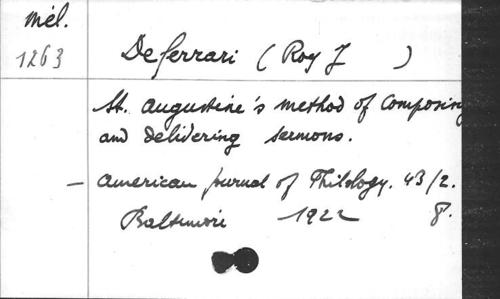 Mél.
1263
Deferrari (Roy J )
St. Augustine's method of composing
and delivering sermons.
— American Journal of Philology. 43/2.
Baltimore 1922 8.